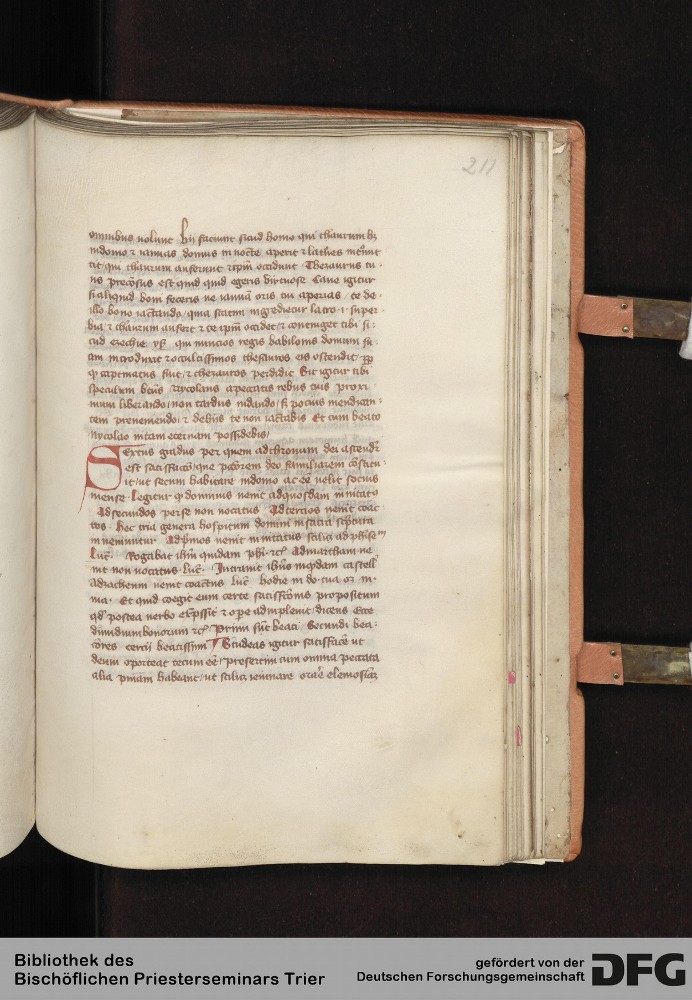 211
omnibus uolunt hij faciunt sicud homo qui thaurum hz
indomo et ianuas domus in nocte aperit et lathes
qui thaurum auferunt et ipm occidunt Thezaurus tu
us preciosus est quid quid egeris virtuose Caue igitur
si aliquid boni feceris ne ianuam oris tui aperias / te de
illo bono iactando / quia statim ingredietur latro i super
bia et thaurum aufert et te ipm occidet et continget tibi si
cud ezechie qui nuncios regis babilonis domum su
am introduxit et ocultissimos thesauros eis ostendit /
captiuatus fuit / et thezauros perdidit Sit igitur tibi
speculum Nycolaus apeccatis rebus tuis proxi
mum liberando / non tardus nidando / si pocius mendican
tem preueniendo et debijs te non iactabis Et cum beato
nycolao uitam eternam possidebis /
Sextus gradus per quem ad thronum dei ascendit
est satisfactio / que pctorem deo familiarem
ut secum habitare indomo ac ee uelit socius
mense Legitur dominus uenit adquosdam inuitatus
Adsecundos per se non uocatus Adtercios uenit coac
tos Hec tria genera hospitum domini in sacra scriptura
inueniuntur Adprimos uenit inuitatus scilicet
Luc Rogabat ihm quidam phi etc Admartham ue
nit non uocatus Luc Intrauit ihus inquodam castell
adzacheum uenit coactus Luc hodie in do tua oz m
ma Et quid coegit eum certe satisfactionis propositum
qd postea uerbo expressit et ope adimpleuit / dicens Ecce
dimidium bonorum etc Primi sunt beati Secundi bea
tiores tercij beatissimi Studeas igitur satisfacere ut
deum oporteat tecum ee / presertim cum omnia peccata
alia pniam habeant / ut scilicet ieiunare orare elemosinas
Bibliothek des
Bischöflichen Priesterseminars Trier
gefördert von der
Deutschen Forschungsgemeinschaft
DFG